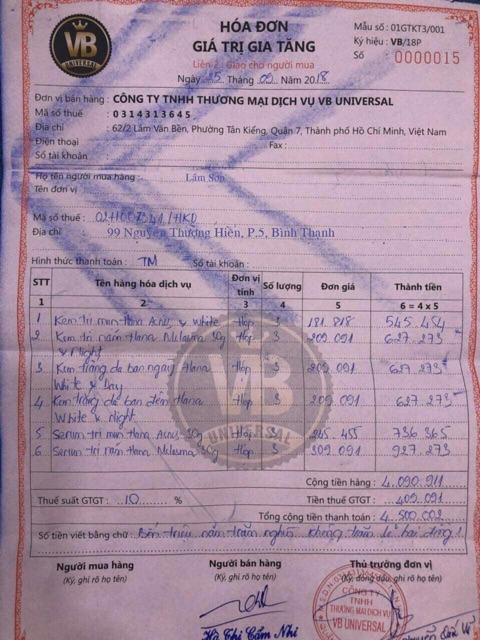 VB
UNIVERSAL
HÓA ĐƠN
GIÁ TRỊ GIA TĂNG
Liên 2: Giao cho người mua
Ngày 25 Tháng 09 Năm 2018
Mẫu số : 01GTKT3/001
Ký hiệu : VB/18P
Số 0000015
Đơn vị bán hàng : CÔNG TY TNHH THƯƠNG MẠI DỊCH VỤ VB UNIVERSAL
Mã số thuế : 0314313645
Địa chỉ : 62/2 Lâm Văn Bền, Phường Tân Kiểng, Quận 7, Thành phố Hồ Chí Minh, Việt Nam
Điện thoại Fax :
Số tài khoản
Họ tên người mua hàng : Lâm Sơn
Tên đơn vị
Mã số thuế :
Địa chỉ : 99 Nguyễn Thượng Hiền, P.5, Bình Thạnh
Hình thức thanh toán : TM Số tài khoản :
STT Tên hàng hóa dịch vụ Đơn vị tính Số lượng Đơn giá Thành tiền
1 2 3 4 5 6 = 4 x 5
1 Kem trị mụn Hana Acnes & White Hộp 3 181.818 545.454
2 Kem trị nám Hana Melasma 30g Hộp 3 209.091 627.273
& Night
3 Kem trắng da ban ngày Hana Hộp 3 209.091 627.273
White & Day
4 Kem trắng da ban đêm Hana Hộp 3 209.091 627.273
White & Night
5 Serum trị mụn Hana Acnes Hộp 3 245.455 736.365
6 Serum trị nám Hana Melasma Hộp 3 309.091 927.273
VB
UNIVERSAL
Cộng tiền hàng : 4.090.911
Thuế suất GTGT : 10 % Tiền thuế GTGT : 409.091
Tổng cộng tiền thanh toán : 4.500.002
Số tiền viết bằng chữ : Bốn triệu năm trăm nghìn không trăm lẻ hai đồng
Người mua hàng Người bán hàng Thủ trưởng đơn vị
(Ký, ghi rõ họ tên) (Ký, ghi rõ họ tên) (Ký, đóng dấu, ghi rõ họ tên)
CÔNG TY
TNHH
THƯƠNG MẠI DỊCH VỤ
VB UNIVERSAL
Hà Thị Cẩm Nhi